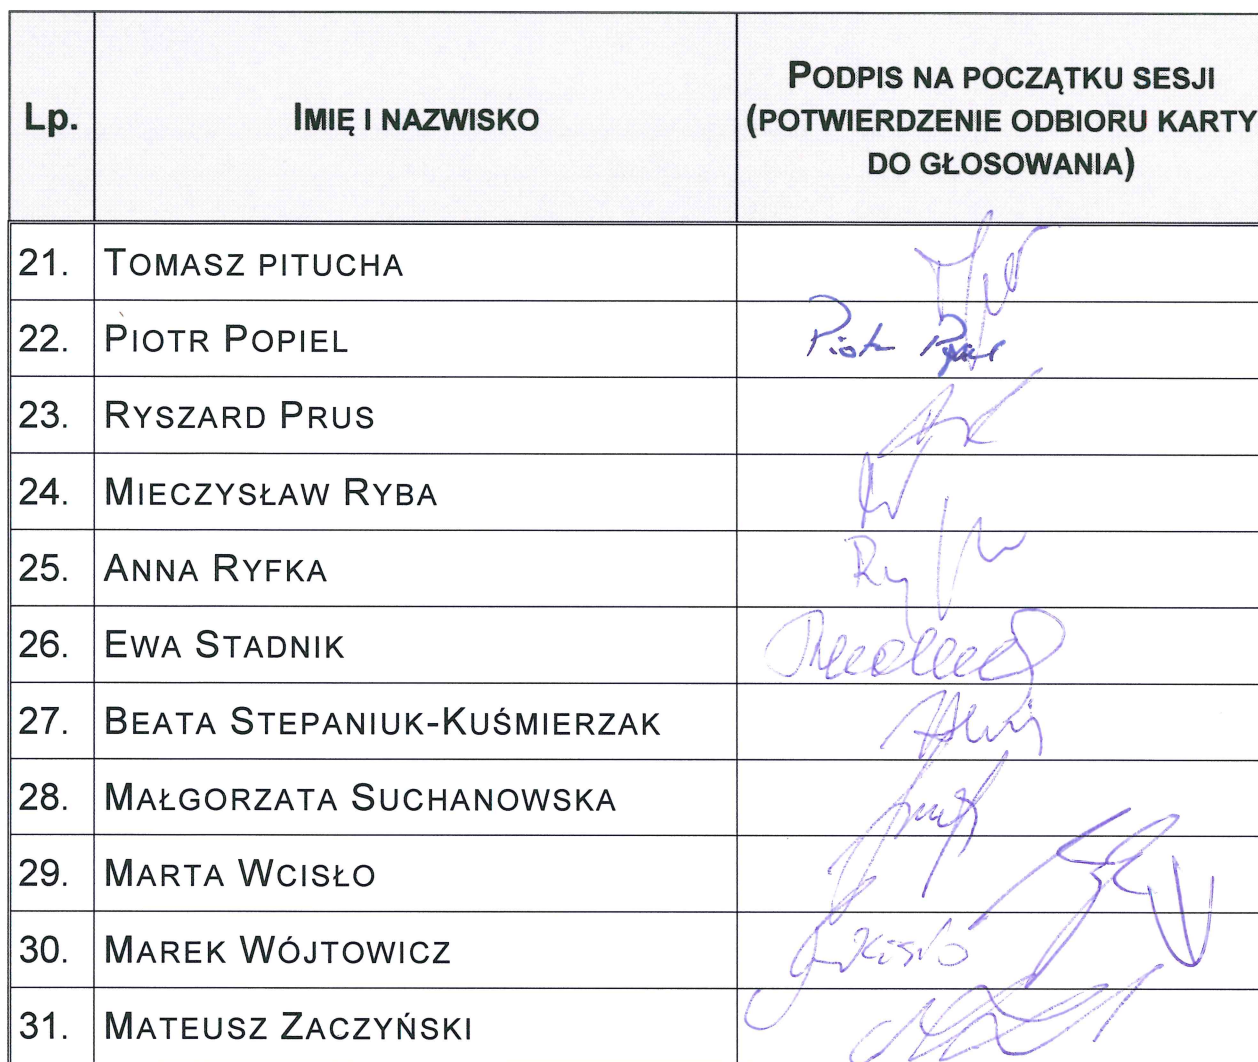 Lp.
IMIĘ I NAZWISKO
PODPIS NA POCZĄTKU SESJI
(POTWIERDZENIE ODBIORU KARTY
DO GŁOSOWANIA)
21. TOMASZ PITUCHA
22. PIOTR POPIEL Piotr
23. RYSZARD PRUS
24. MIECZYSŁAW RYBA
25. ANNA RYFKA
26. EWA STADNIK
27. BEATA STEPANIUK-KUŚMIERZAK
28. MAŁGORZATA SUCHANOWSKA
29. MARTA WCISŁO
30. MAREK WÓJTOWICZ
31. MATEUSZ ZACZYŃSKI